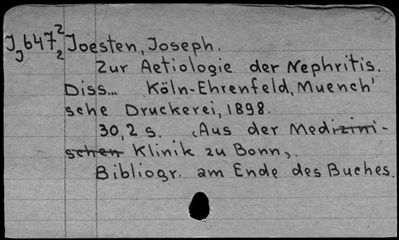 J J647 2 2 Joesten, Joseph.
Zur Aetiologie der Nephritis.
Diss... Köln-Ehrenfeld, Muench'
sche Druckerei, 1898.
30,2 s. (Aus der Medizini-
schen Klinik zu Bonn).
Bibliogr. am Ende des Buches.